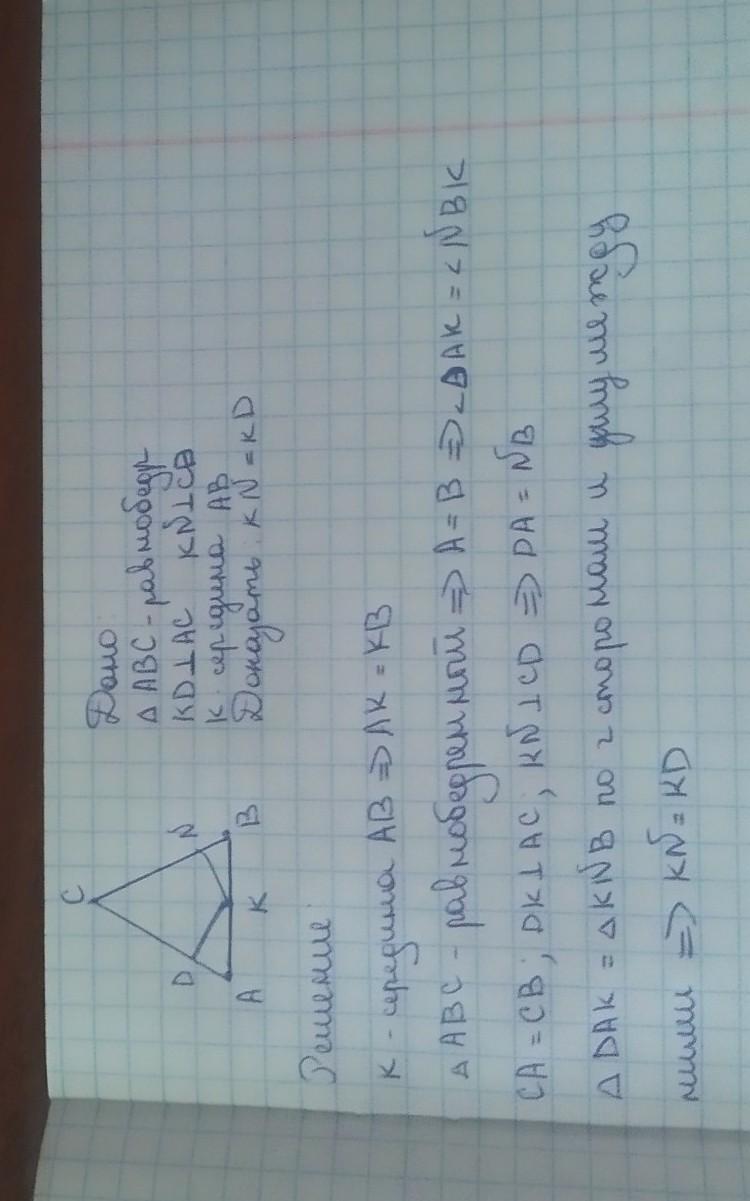 Дано:
△ ABC - равнобедр
KD⊥AC KN⊥CB
K - середина AB
Доказать: KN = KD
C
D
N
A
K
B
Решение:
K - середина AB ⇒ AK = KB
△ ABC - равнобедренный ⇒ A = B ⇒ <DAK = <NBK
CA = CB; DK⊥AC; KN⊥CD ⇒ DA = NB
△ DAK = △ KNB по 2 сторонам и углу между
ними ⇒ KN = KD